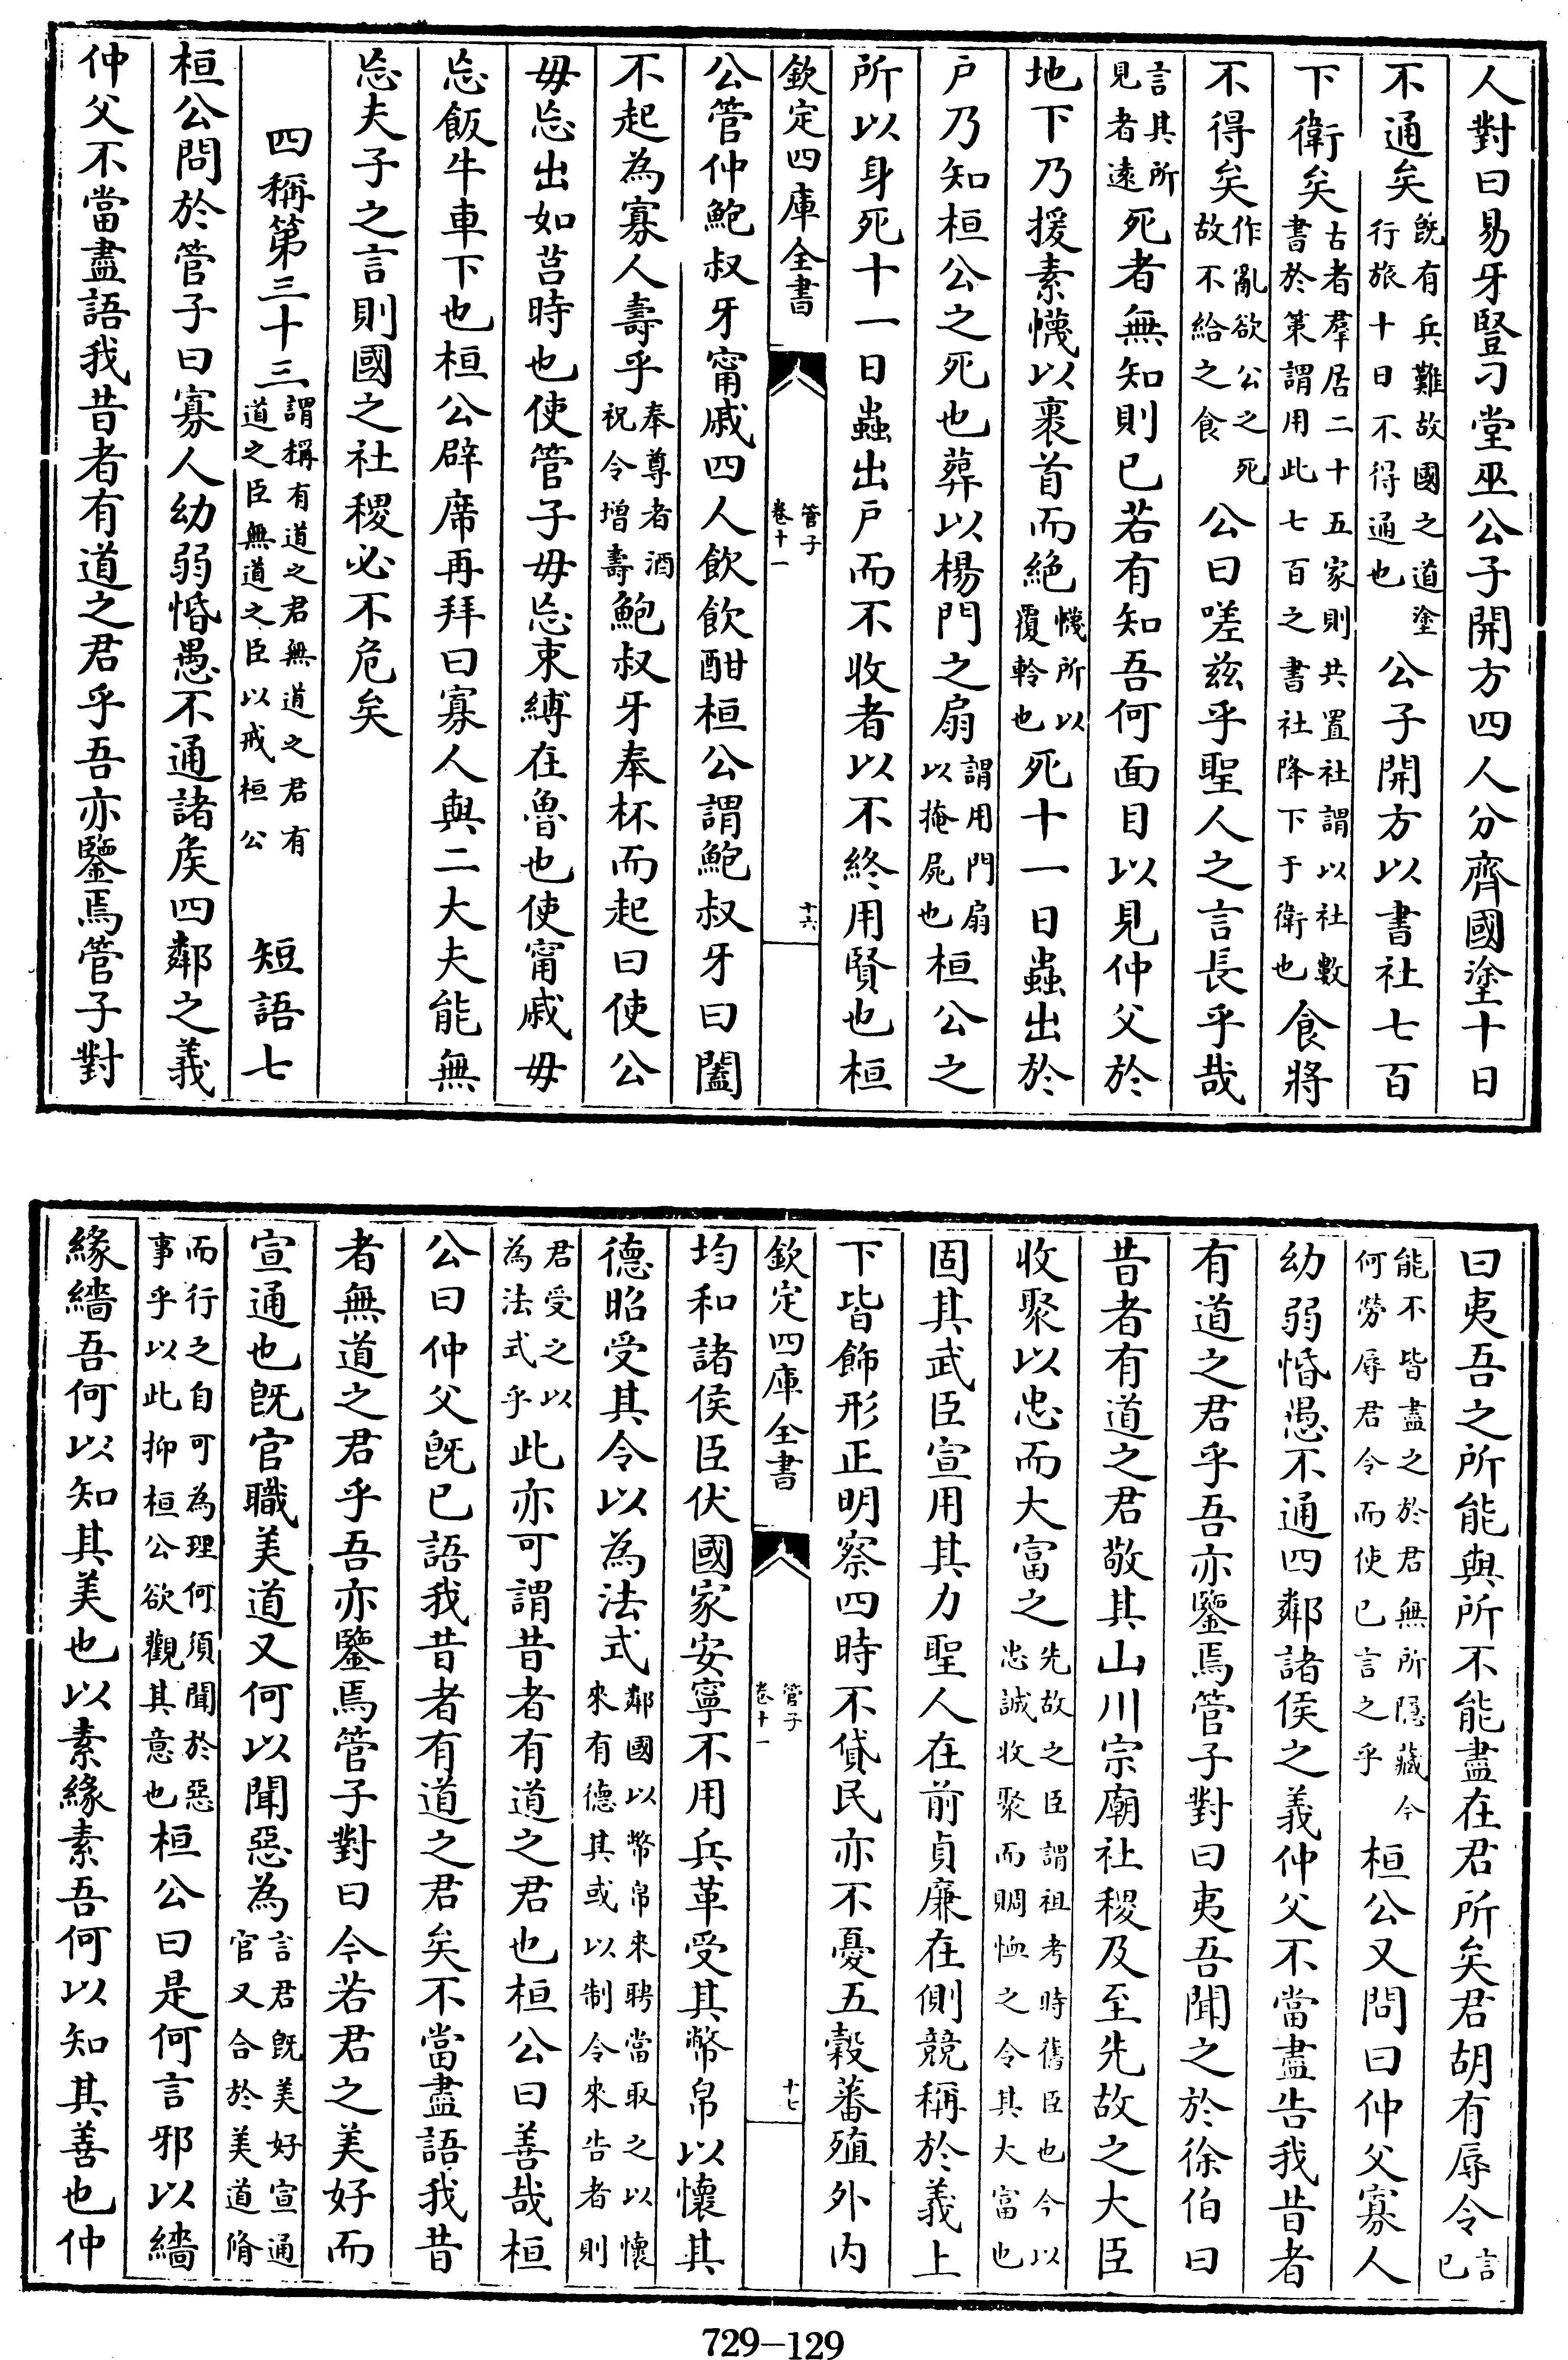 人對曰易牙豎刁堂巫公子開方四人分齊國塗十日
不通矣既有兵難故國之道塗行旅十日不得通也公子開方以書社七百
下衛矣古者羣居二十五家則共置社謂以社數書於策謂用此七百之書社降下于衛也食將
不得矣作亂欲公之死故不給之食公曰嗟兹乎聖人之言長乎哉
言其所見者遠死者無知則已若有知吾何面目以見仲父於
地下乃援素幭以裹首而絶幭所以覆軨也死十一日蟲出於
戶乃知桓公之死也葬以楊門之扇謂用門扇以掩屍也桓公之
所以身死十一日蟲出戶而不收者以不終用賢也桓
欽定四庫全書
管子
卷十一
十六
公管仲鮑叔牙甯戚四人飲飲酣桓公謂鮑叔牙曰闔
不起為寡人壽乎奉尊者酒祝令增壽鮑叔牙奉杯而起曰使公
毋忘出如莒時也使管子毋忘束縛在魯也使甯戚毋
忘飯牛車下也桓公辟席再拜曰寡人與二大夫能無
忘夫子之言則國之社稷必不危矣
四稱第三十三謂稱有道之君無道之君有道之臣無道之臣以戒桓公 短語七
桓公問於管子曰寡人幼弱惛愚不通諸侯四鄰之義
仲父不當盡語我昔者有道之君乎吾亦鑒焉管子對
曰夷吾之所能與所不能盡在君所矣君胡有辱令言已
能不皆盡之於君無所隠藏今何勞辱君令而使已言之乎桓公又問曰仲父寡人
幼弱惛愚不通四鄰諸侯之義仲父不當盡告我昔者
有道之君乎吾亦鑒焉管子對曰夷吾聞之於徐伯曰
昔者有道之君敬其山川宗廟社稷及至先故之大臣
收聚以忠而大富之先故之臣謂祖考時舊臣也今以忠誠收聚而賙恤之令其大富也
固其武臣宣用其力聖人在前貞廉在側競稱於義上
下皆飾形正明察四時不貸民亦不憂五穀蕃殖外内
欽定四庫全書
管子
卷十一
十七
均和諸侯臣伏國家安寧不用兵革受其幣帛以懷其
德昭受其令以為法式鄰國以幣帛來聘當取之以懷來有德其或以制令來告者則
君受之以為法式乎此亦可謂昔者有道之君也桓公曰善哉桓
公曰仲父既已語我昔者有道之君矣不當盡語我昔
者無道之君乎吾亦鑒焉管子對曰今若君之美好而
宣通也既官職美道又何以聞惡為言君既美好宣通官又合於美道脩
而行之自可為理何須聞於惡事乎以此抑桓公欲觀其意也桓公曰是何言邪以繬
緣繬吾何以知其美也以素緣素吾何以知其善也仲
729—129